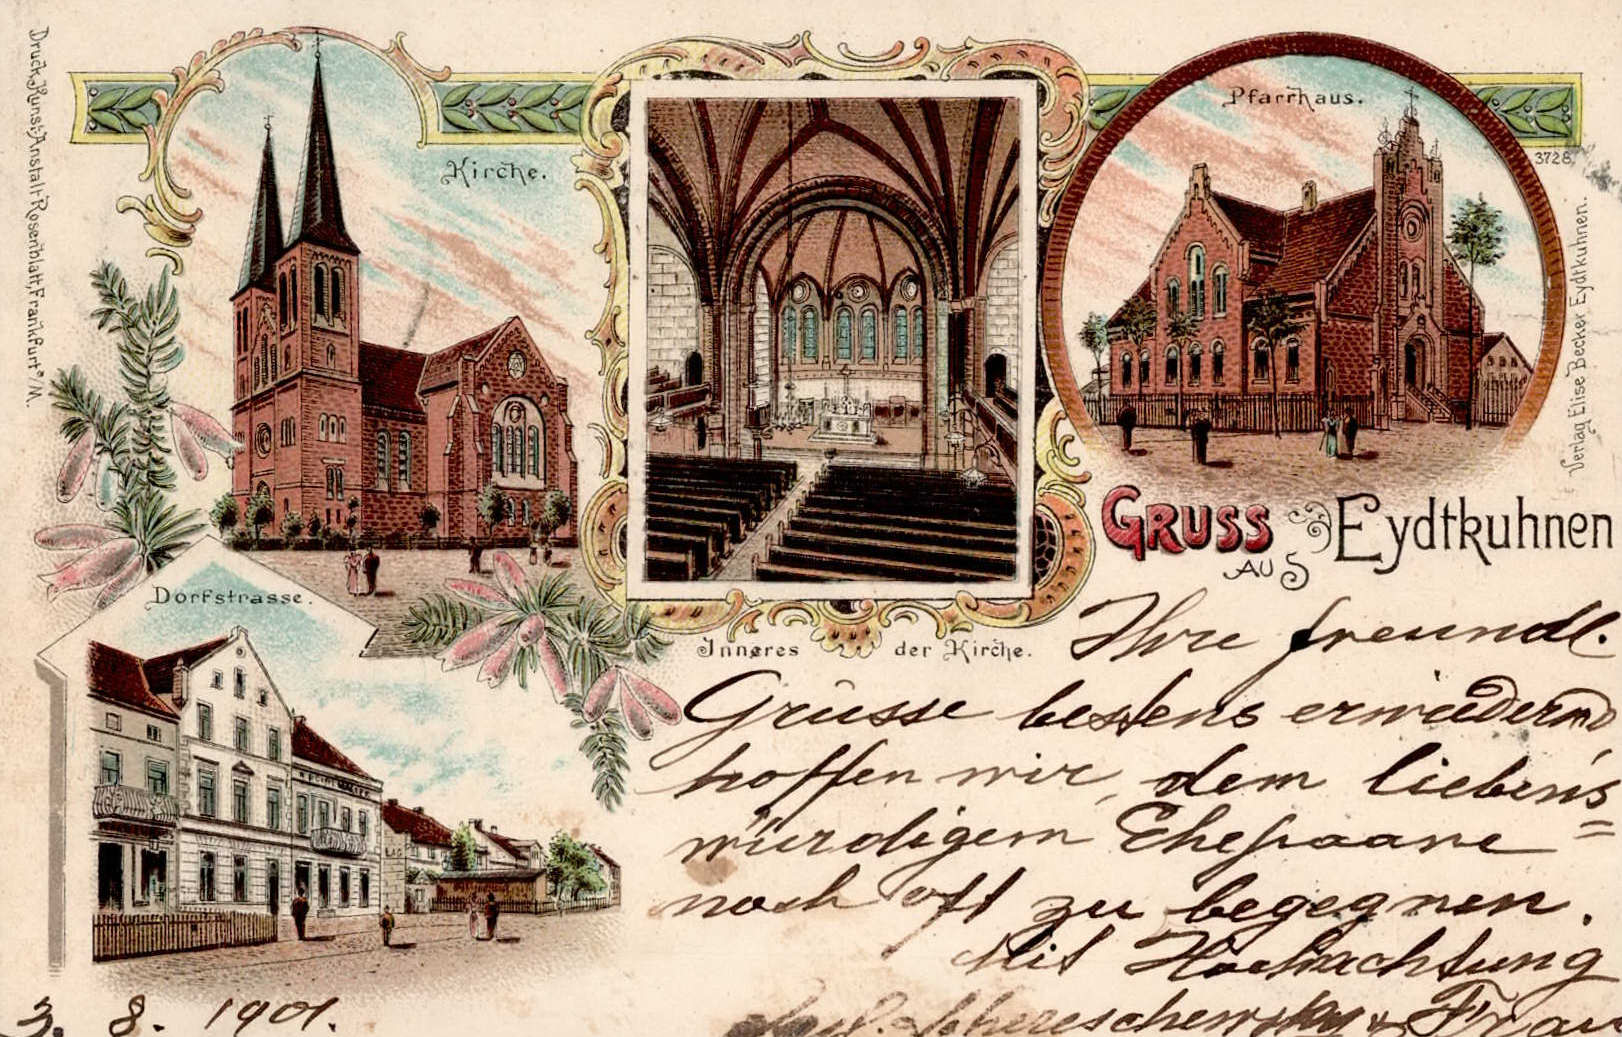 Druck Kunst-Anstalt Rosenblatt, Frankfurt a/M.
Kirche.
Pfarrhaus.
3728.
Verlag Elise Becker Eydtkuhnen.
GRUSS
AUS
Eydtkuhnen
Dorfstrasse.
Inneres der Kirche.
Ihre freundl.
Grüsse bestens erwiedernd
hoffen wir, dem liebens=
würdigem Ehepaare
noch oft zu begegnen.
Mit Hochachtung
& Frau
3. 8. 1901.